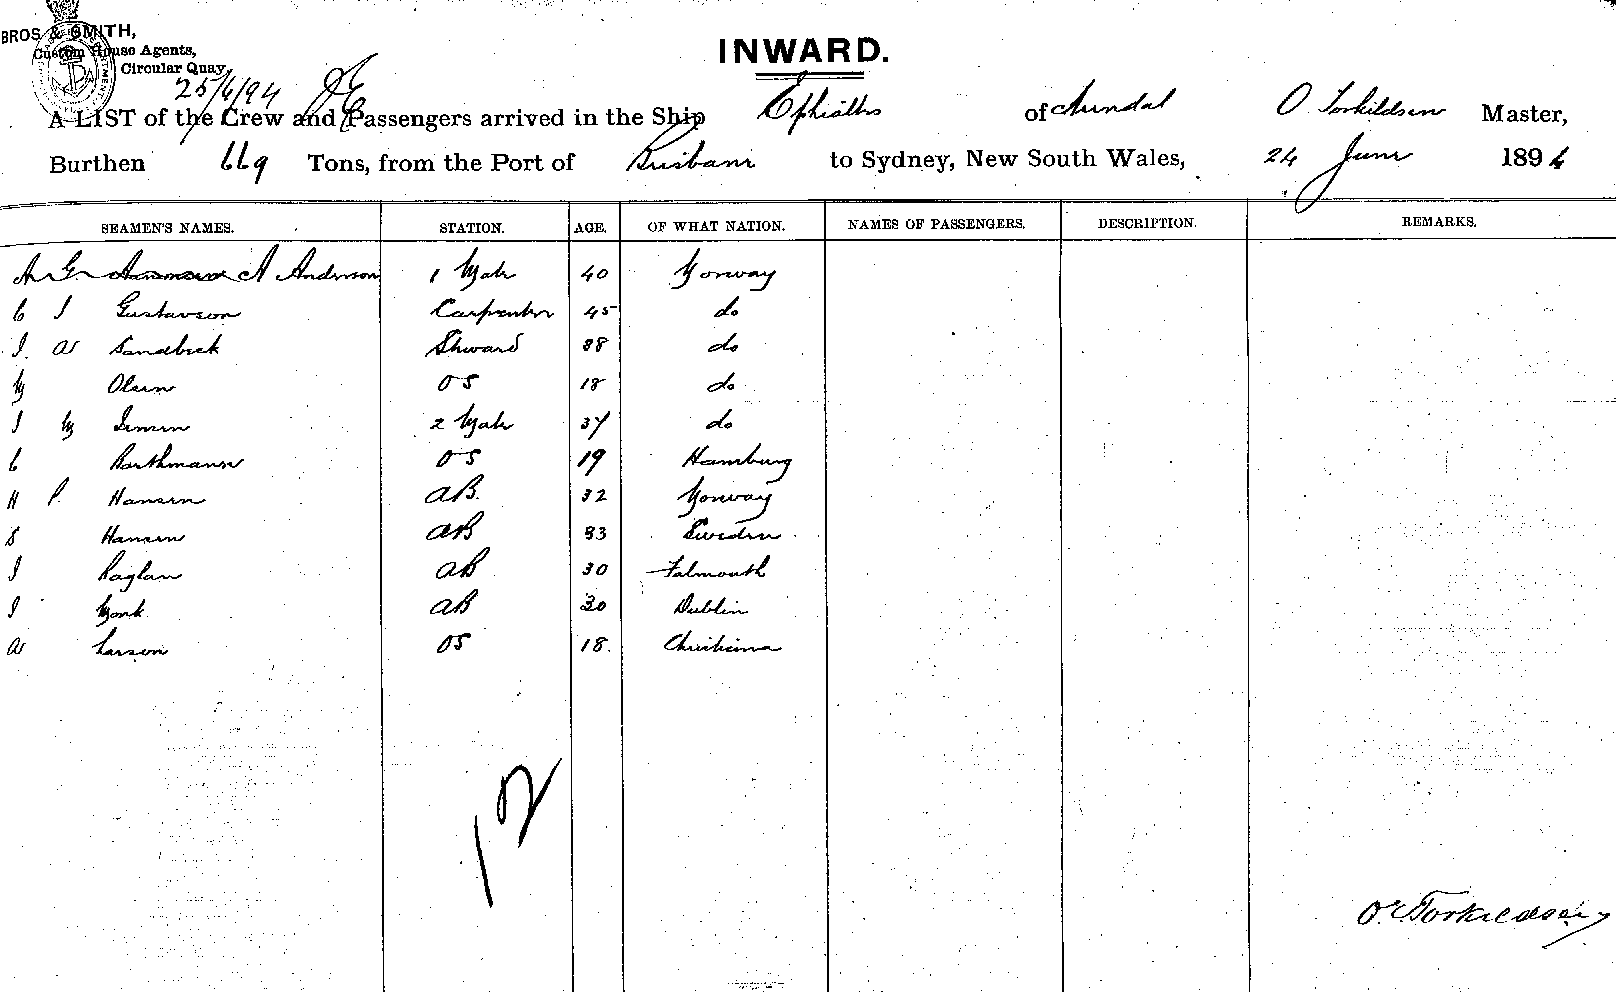 BROS & SMITH,
Custom House Agents,
Circular Quay,
INWARD.
25/6/94
A LIST of the Crew and Passengers arrived in the Ship Ephialtes of Arendal O Torkildsen Master,
Burthen 669 Tons, from the Port of Brisbane to Sydney, New South Wales, 24 June 1894
SEAMEN'S NAMES. STATION. AGE. OF WHAT NATION. NAMES OF PASSENGERS. DESCRIPTION. REMARKS.
A Anderson 1 Mate 40 Norway
C J Gustavson Carpenter 45 do
J. A Sandbeck Steward 38 do
M Olsen OS 18 do
J M Jensen 2 Mate 37 do
C Barthmann OS 19 Hamburg
H P. Hansen AB. 32 Norway
S Hansen AB 33 Sweden
J Raglan AB 30 Falmouth
J Monk AB 30 Dublin
A Larson OS 18. Christiania
12
O Torkildsen